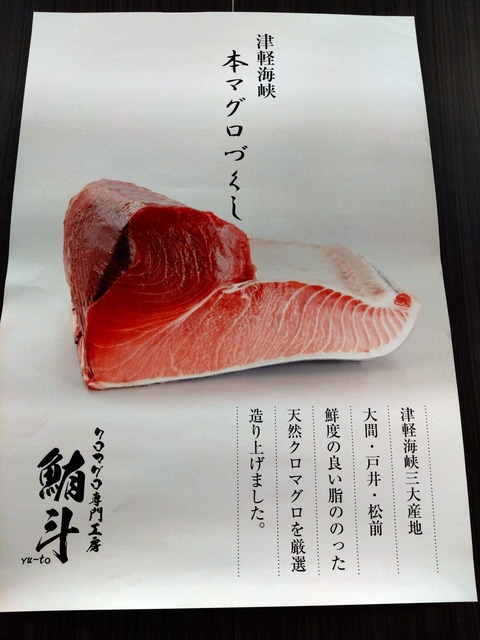 津軽海峡
本マグロづくし
津軽海峡三大産地
大間・戸井・松前
鮮度の良い脂ののった
天然クロマグロを厳選
造り上げました。
クロマグロ専門工房
鮪斗
yu-to